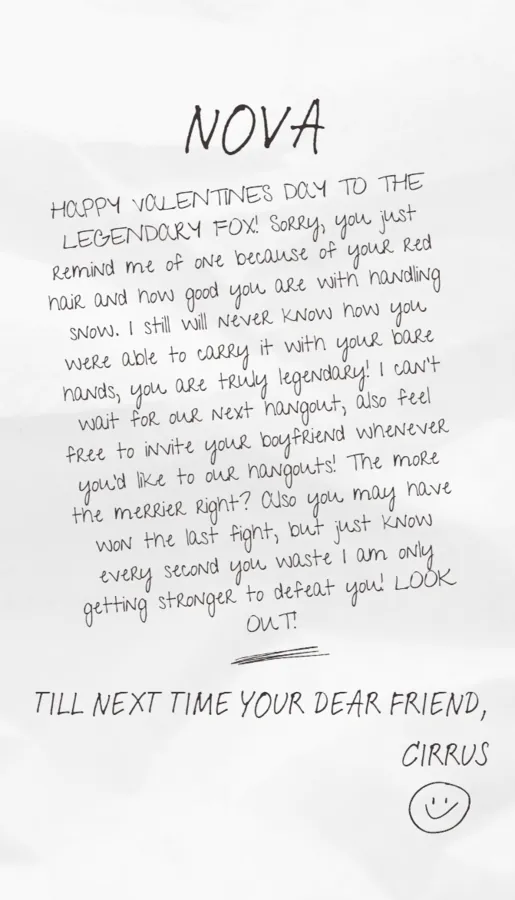 NOVA
HAPPY VALENTINES DAY TO THE
LEGENDARY FOX! Sorry, you just
remind me of one because of your red
hair and how good you are with handling
snow. I still will never know how you
were able to carry it with your bare
hands, you are truly legendary! I can't
wait for our next hangout, also feel
free to invite your boyfriend whenever
you'd like to our hangouts! The more
the merrier right? Also you may have
won the last fight, but just know
every second you waste I am only
getting stronger to defeat you! LOOK
OUT!
TILL NEXT TIME YOUR DEAR FRIEND,
CIRRUS